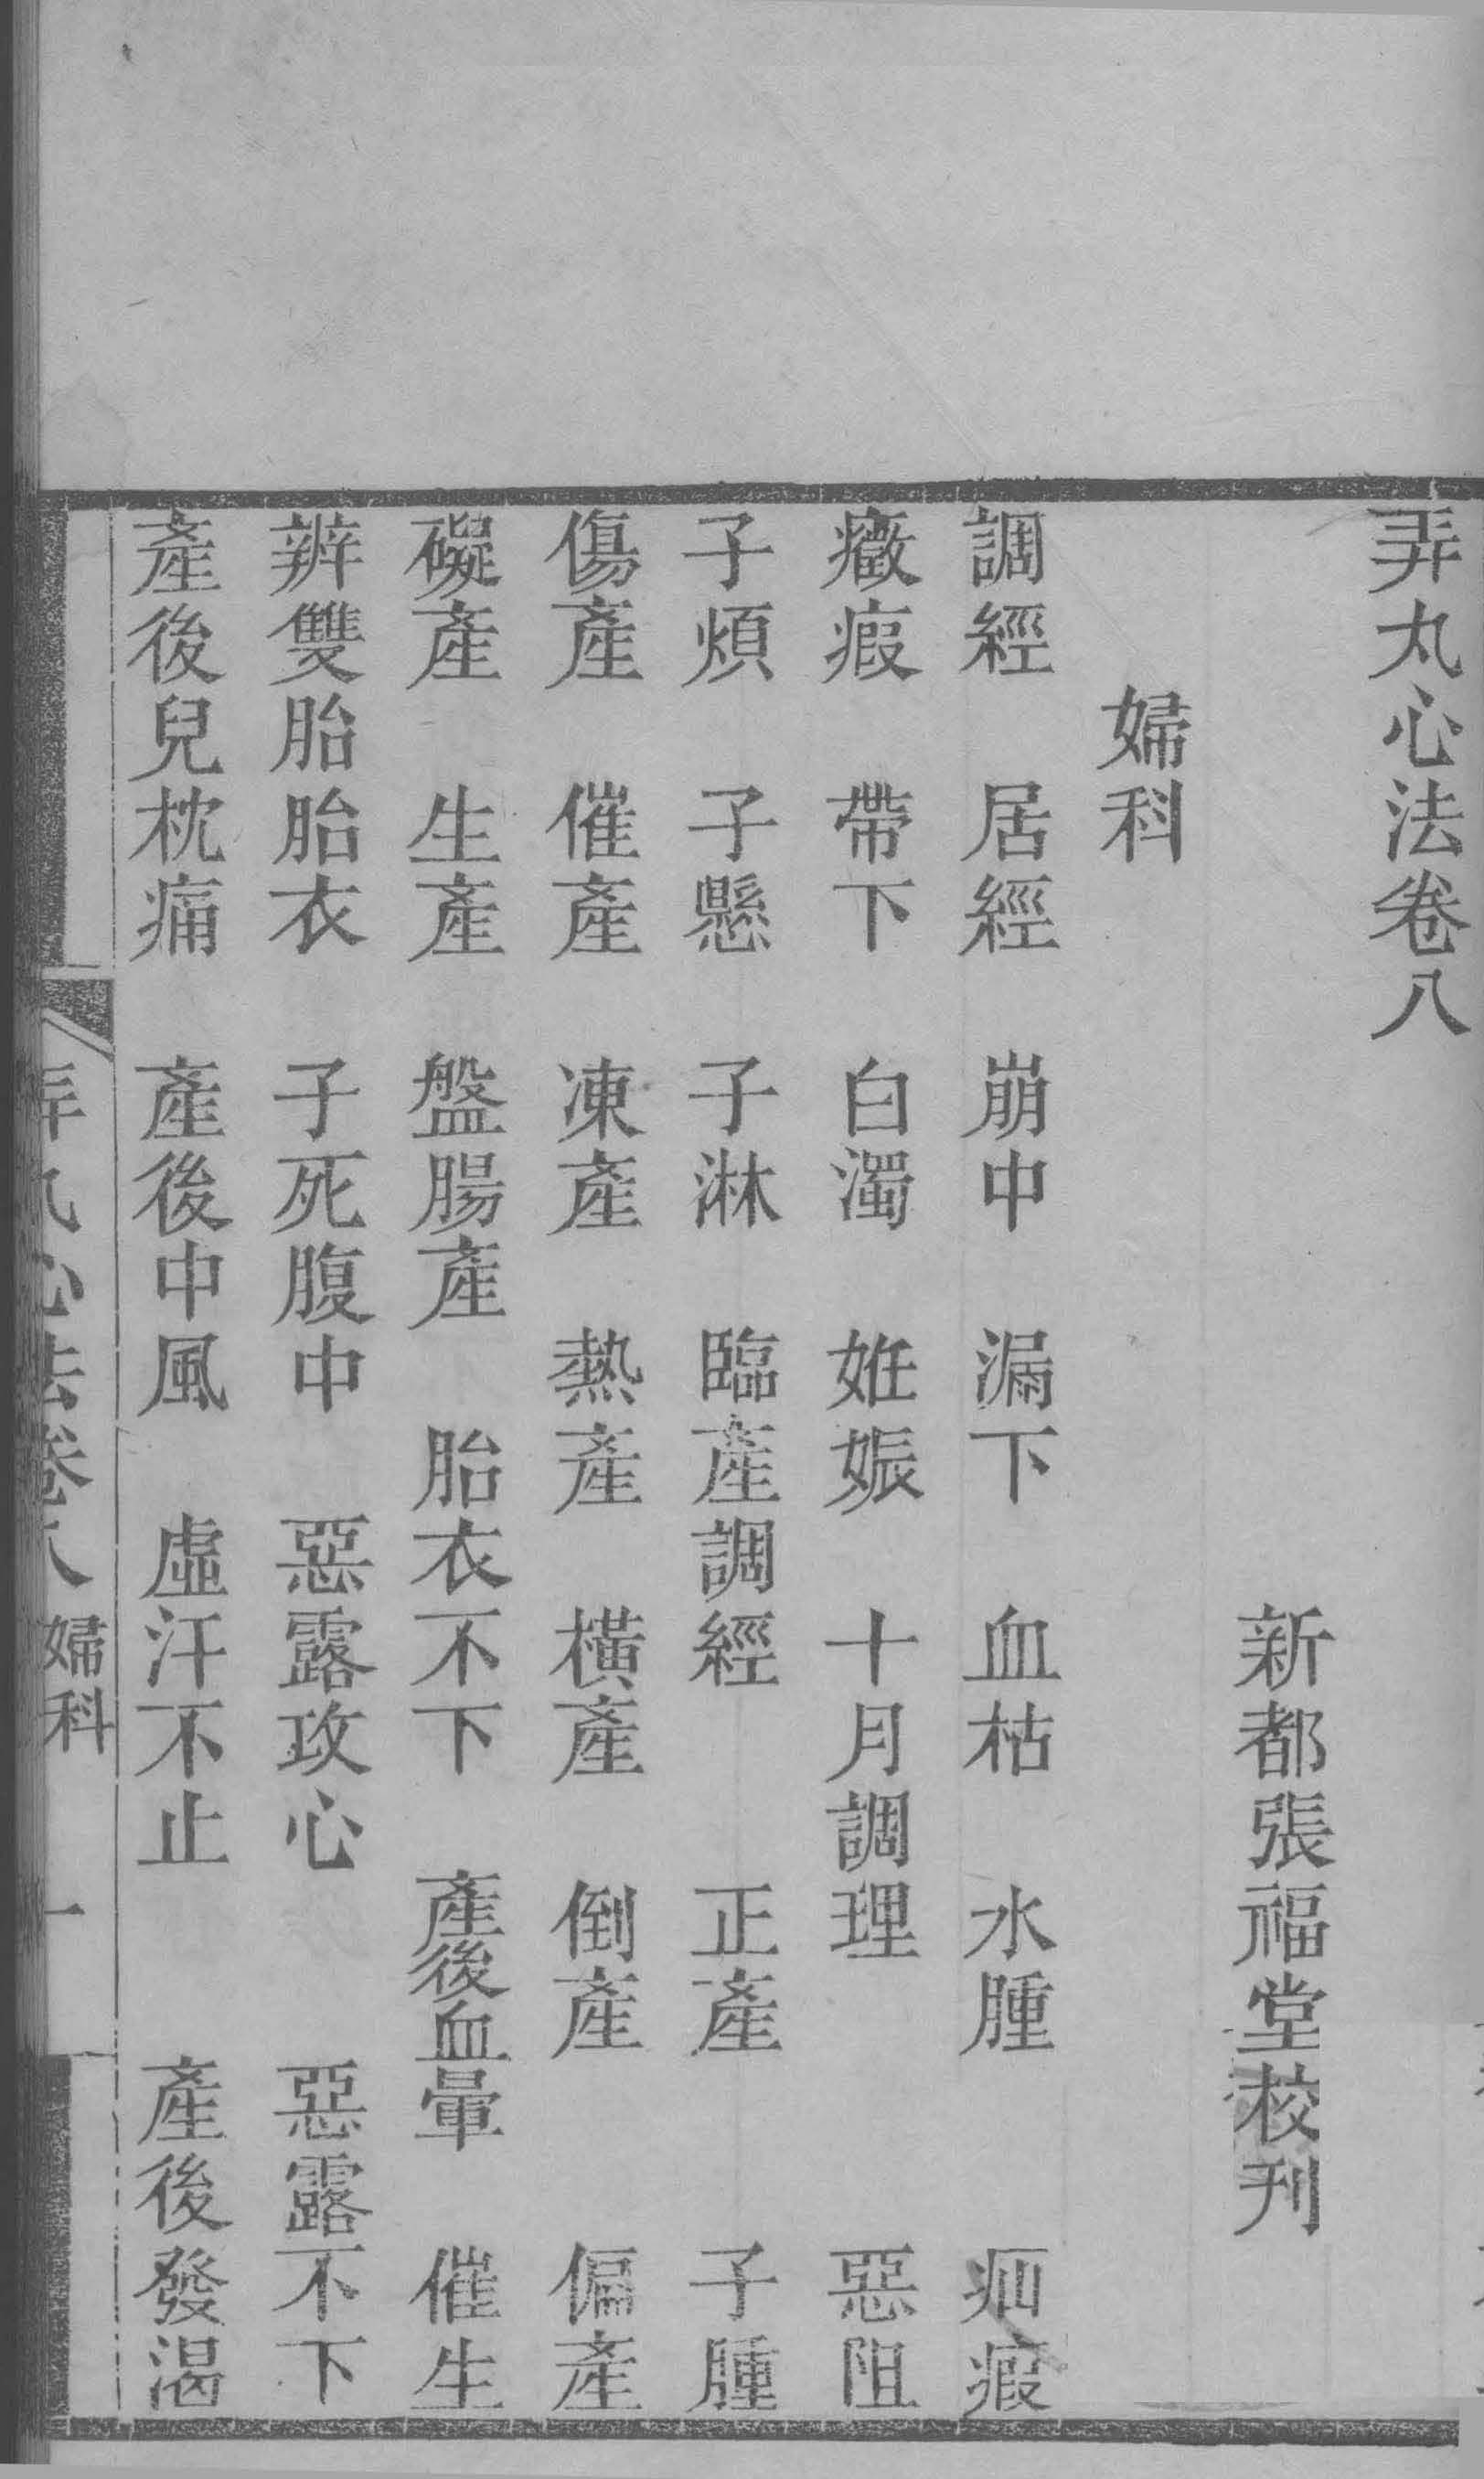 弄丸心法卷八
新都張福堂校刊
婦科
調經　居經　崩中　漏下　血枯　水腫　疝瘕
癥瘕　帶下　白濁　姙娠　十月調理　惡阻
子煩　子懸　子淋　臨產調經　正產　子腫
傷產　催產　凍產　熱產　橫產　倒產　偏產
礙產　生產　盤腸產　胎衣不下　產後血暈　催生
辨雙胎胎衣　子死腹中　惡露攻心　惡露不下
產後兒枕痛　產後中風　虛汗不止　產後發渴
弄丸心法卷八　婦科　一